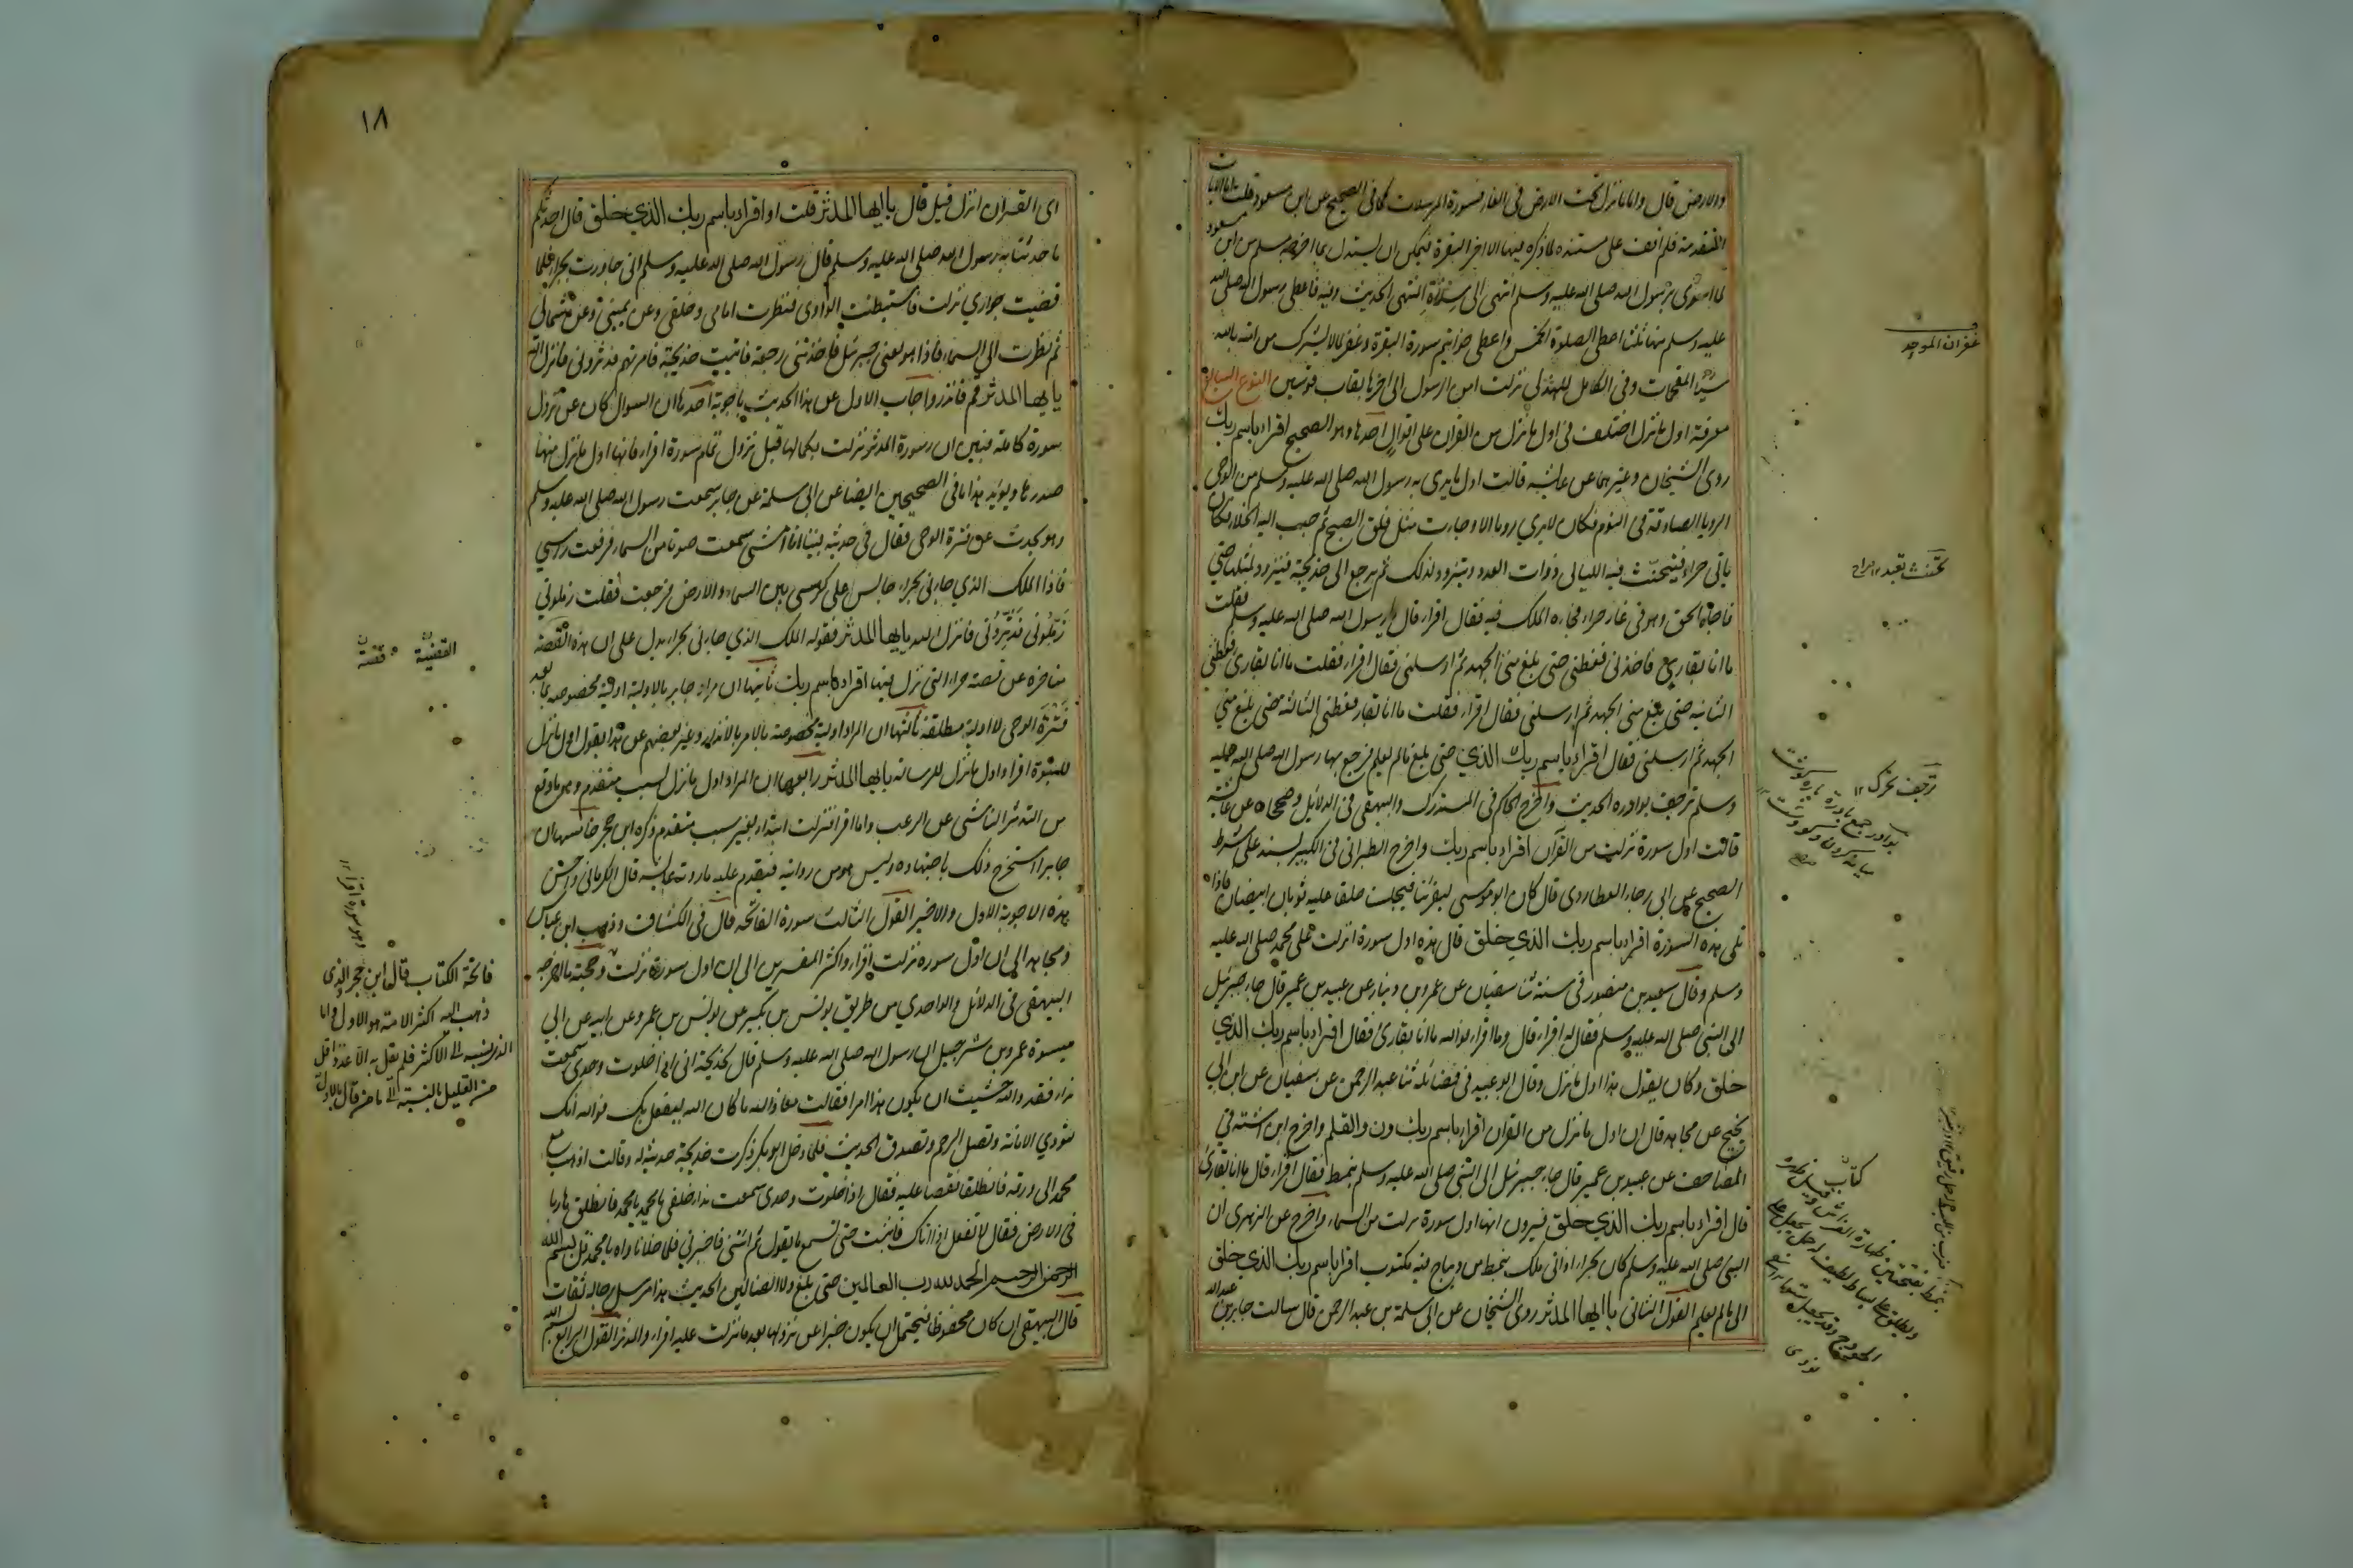 والارض قال واما ما نزل تحت الارض فى الغار فسورة المرسلات كما فى الصحيح عن ابن مسعود قلت اما الايات
المتقدمة فلم اقف على مستند لما ذكره فيها الا اخر البقرة فيمكن ان يستدل بما اخرجه مسلم عن ابن مسعود
لما اسرى برسول الله صلى الله عليه وسلم انتهى الى سدرة المنتهى الحديث وفيه فاعطى رسول الله صلى الله
عليه وسلم منها ثلثا اعطى الصلوة الخمس واعطى خواتيم سورة البقرة وغفر لمن لا يشرك من امته بالله
شيئا المقحمات وفى الكامل للهذلى نزلت امن الرسول الى اخرها بقاب قوسين النوع السابع
معرفة اول ما نزل اختلف فى اول ما نزل من القران على اقوال احدها وهو الصحيح اقرا باسم ربك
روى الشيخان وغيرهما عن عائشة قالت اول ما بدى به رسول الله صلى الله عليه وسلم من الوحى
الرويا الصادقة فى النوم فكان لا يرى رويا الا وجاءت مثل فلق الصبح ثم حبب اليه الخلاء فكان
ياتى حراء فيتحنث فيه الليالى ذوات العدد ويتزود لذلك ثم يرجع الى خديجة فيتزود لمثلها حتى
فاجاه الحق وهو فى غار حراء فجاءه الملك فيه فقال اقرا قال رسول الله صلى الله عليه وسلم فقلت
ما انا بقارى فاخذنى فغطنى حتى بلغ منى الجهد ثم ارسلنى فقال اقرا فقلت ما انا بقارى فغطنى
الثانية حتى بلغ منى الجهد ثم ارسلنى فقال اقرا فقلت ما انا بقارى فغطنى الثالثة حتى بلغ منى
الجهد ثم ارسلنى فقال اقرا باسم ربك الذي حتى بلغ مالم يعلم فرجع بها رسول الله صلى الله عليه
وسلم ترجف بوادره الحديث واخرج الحاكم فى المستدرك والبيهقى فى الدلائل وصححاه عن عائشة
قالت اول سورة نزلت من القرآن اقرا باسم ربك واخرج الطبرانى فى الكبير بسند على شرط
الصحيح عن ابى رجاء العطاردى قال كان ابو موسى يقرئنا فيجلسنا حلقا عليه ثوبان ابيضان فاذا
تلى هذه السورة اقرا باسم ربك الذي خلق قال هذه اول سورة انزلت على محمد صلى الله عليه
وسلم وقال سعيد بن منصور فى سننه ثنا سفيان عن عمرو بن دينار عن عبيد بن عمير قال جاء جبرئيل
الى النبى صلى الله عليه وسلم فقال له اقرا قال وما اقرا فوالله ما انا بقارئ فقال اقرا باسم ربك الذي
خلق وكان يقول هذا اول ما نزل وقال ابو عبيد فى فضائله ثنا عبد الرحمن عن سفيان عن ابن ابي
نجيح عن مجاهد قال ان اول ما نزل من القران اقرا باسم ربك ون والقلم واخرج ابن اشته في
المصاحف عن عبيد بن عمير قال جاء جبرئيل الى النبى صلى الله عليه وسلم بنمط فقال اقرا قال ما انا بقارئ
قال اقرا باسم ربك الذي خلق فيرون انها اول سورة نزلت من السماء واخرج عن الزهرى ان
النبى صلى الله عليه وسلم كان بحراء اذ اتى ملك بنمط من ديباج فيه مكتوب اقرا باسم ربك الذي خلق
الى مالم يعلم القول الثانى يا ايها المدثر روى الشيخان عن ابى سلمة بن عبد الرحمن قال سالت جابر بن عبد الله
غفران الموجد
يتحنث يتعبد ١٢ صراح
ترجف تحرك ١٢
كتاب
١٨
اى القران انزل قبل قال يا ايها المدثر قلت او اقرا باسم ربك الذي خلق قال احدثكم
ما حدثنا به رسول الله صلى الله عليه وسلم قال رسول الله صلى الله عليه وسلم انى جاورت بحراء فلما
قضيت جواري نزلت فاستبطنت الوادى فنظرت امامى وخلفى وعن يمينى وعن شمالى
ثم نظرت الى السماء فاذا هو يعنى جبرئيل فاخذتنى رجفة فاتيت خديجة فامرتهم فدثرونى فانزل الله
يا ايها المدثر قم فانذر واجاب الاول عن هذا الحديث باجوبة احدها ان السوال كان عن نزول
سورة كاملة فبين ان سورة المدثر نزلت بكمالها قبل نزول تمام سورة اقرا فانها اول ما نزل منها
صدرها ويويد هذا ما فى الصحيحين ايضا عن ابى سلمة عن جابر سمعت رسول الله صلى الله عليه وسلم
وهو يحدث عن فترة الوحى فقال فى حديثه بينا انا امشى سمعت صوتا من السماء فرفعت راسي
فاذا الملك الذي جاءنى بحراء جالس على كرسى بين السماء والارض فرجعت فقلت زملونى
زملونى فدثرونى فانزل الله يا ايها المدثر فقوله الملك الذي جاءنى بحراء يدل على ان هذه القصة
متاخرة عن قصة حراء التى نزل فيها اقرا باسم ربك ثانيها ان مراد جابر بالاولية اولية مخصوصة بما بعد
فترة الوحى لا اولية مطلقة ثالثها ان المراد اولية مخصوصة بالامر بالانذار وعبر بعضهم عن هذا بقوله اول ما نزل
للنبوة اقرا واول ما نزل للرسالة يا ايها المدثر رابعها ان المراد اول ما نزل بسبب متقدم وهو ما وقع
من التدثر الناشى عن الرعب واما اقرا فنزلت ابتداء بغير سبب متقدم ذكره ابن حجر خامسها ان
جابرا استخرج ذلك باجتهاده وليس هو من روايته فيقدم عليه ما روته عائشة قال الكرمانى واحسن
هذه الاجوبة الاول والاخير القول الثالث سورة الفاتحة قال فى الكشاف وذهب ابن عباس
ومجاهد الى ان اول سورة نزلت اقرا واكثر المفسرين الى ان اول سورة نزلت وحجته ما اخرجه
البيهقى فى الدلائل والواحدي من طريق يونس بن بكير عن يونس بن عمرو عن ابيه عن ابى
ميسرة عمرو بن شرحبيل ان رسول الله صلى الله عليه وسلم قال لخديجة انى اذا خلوت وحدى سمعت
نداء فقد والله خشيت ان يكون هذا امرا فقالت معاذ الله ما كان الله ليفعل بك فوالله انك
لتودي الامانة وتصل الرحم وتصدق الحديث فلما دخل ابو بكر ذكرت خديجة حديثه له وقالت اذهب مع
محمد الى ورقة فانطلقا فقصا عليه فقال اذا خلوت وحدى سمعت نداء خلفى يا محمد يا محمد فانطلق هاربا
فى الارض فقال لا تفعل اذا اتاك فاثبت حتى تسمع ما يقول ثم ائتنى فاخبرنى فلما خلا ناداه يا محمد قل بسم الله
الرحمن الرحيم الحمد لله رب العالمين حتى بلغ ولا الضالين الحديث هذا مرسل رجاله ثقات
قال البيهقى ان كان محفوظا فيحتمل ان يكون خبرا عن نزولها بعد ما نزلت عليه اقرا والمدثر القول الرابع بسم الله
القضية قصة
وهو سورة اقرا ١٢
فاتحة الكتاب قال ابن حجر والذى
ذهب اليه اكثر الامة هو الاول واما
الذى نسبه الى الاكثر فلم يقل به الا عدد اقل
من القليل بالنسبة الى من قال بالاول